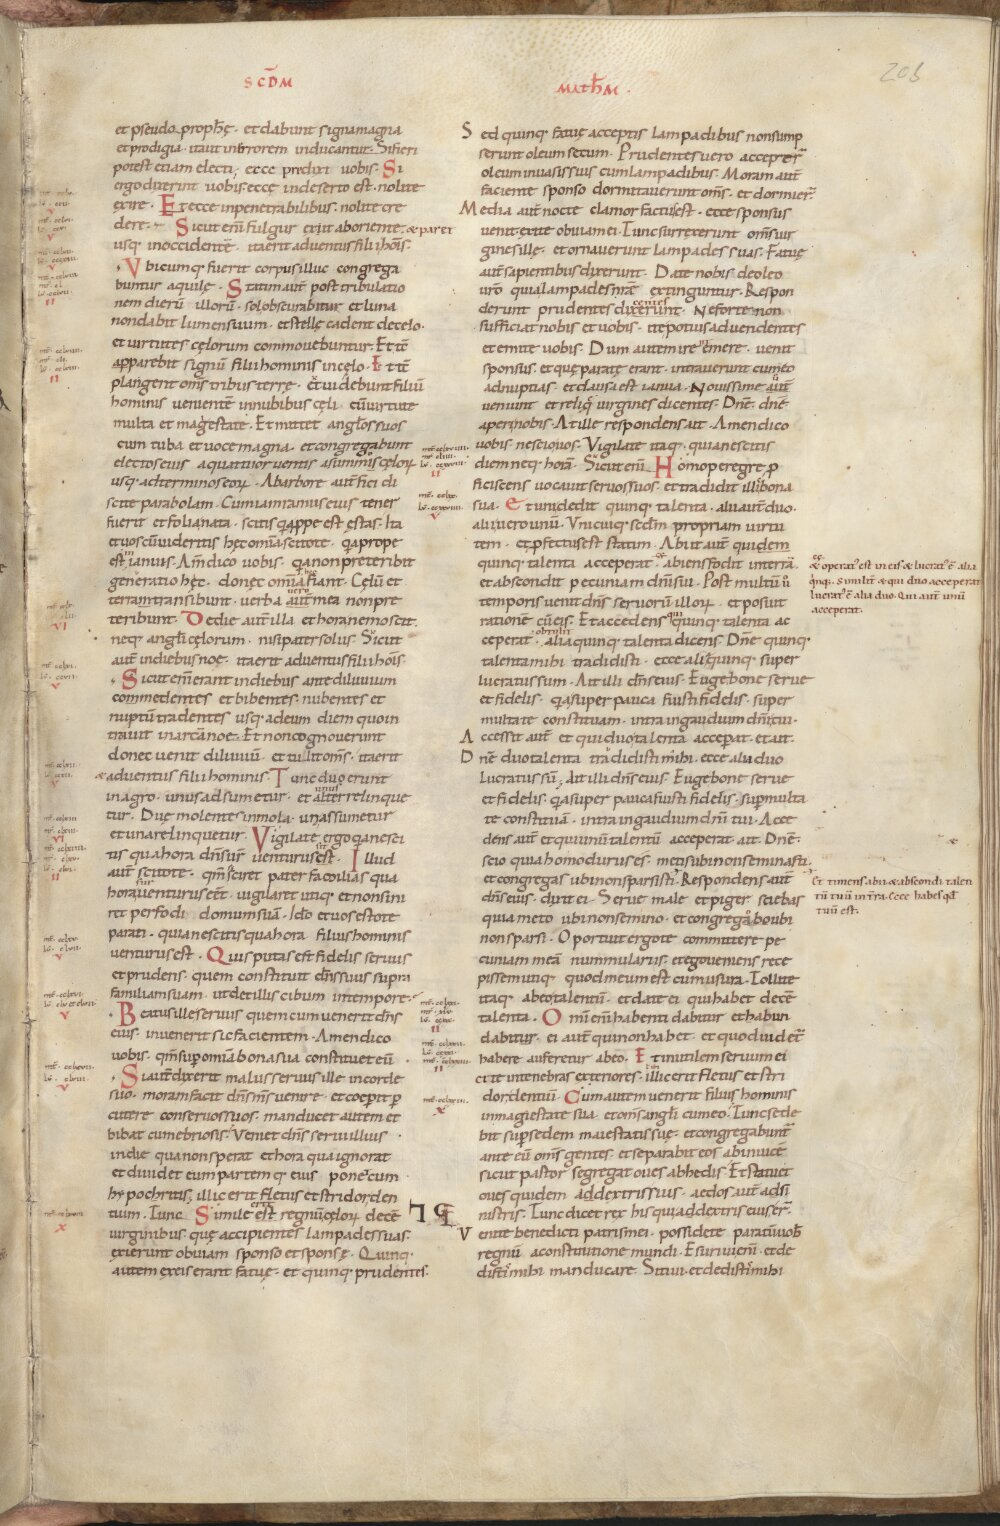 SCD̄M
MATH̄M.
203
et pseudo prophę̄. et dabunt signa magna
et prodigia. ita ut in errorem inducantur. Si fieri
potest etiam electi. ecce predixi uobis. Si
ergo dixerint uobis. ecce in deserto est. nolite
exire. Et ecce in penetrabilibus. nolite cre
dere. Sicut eni᷒ fulgur exiit ab oriente. & paret
usq; in occidente᷒. ita erit aduentus filii hōis.
Vbicumq; fuerit corpus illuc congrega
buntur aquilę. Statim aut̄ post tribulatio
nem dierū illorū. sol obscurabitur et luna
non dabit lumen suum. et stellę cadent de celo.
et uirtutes cęlorum commouebuntur. Et tc̄
apparebit signū filii hominis in cęlo. Et tc̄
plangent om̄s tribus terrę. et uidebunt filiū
hominis uenientē in nubibus cęli. cū uirtute
multa et magestate. Et mittet angl̄os suos
cum tuba et uoce magna. et congregabunt
electos eius a quattuor uentis a summis cęloꝝ
usq; ad terminos eoꝝ. Ab arbore aut̄ fici di
scite parabolam. Cum iam ramus eius tener
fuerit et folia nata. scitis q̄a ppe est ęstas. Ita
et uos cū uideritis hęc om̄ia scitote. q̄a prope
est in ianuis. Am̄ dico uobis. q̄a non preteribit
generatio hęc. donec om̄ia hęc fiant. Cęlū et
terram transibunt. uerba uero mea non pre
teribunt. De die aut̄ illa et hora nemo scit.
neq; angl̄i cęlorum. nisi pater solus. Sicut
aut̄ in diebus noe. ita erit aduentus filii hōis.
Sicut eni᷒ erant in diebus ante diluuium
commedentes et bibentes. nubentes et
nuptū tradentes usq; ad eum diem quo in
trauit in arcā noe. Et non cognouerunt
donec uenit diluuiū. et tulit om̄s. ita erit
& aduentus filii hominis. Tunc duo erunt
in agro. unus adsumetur. et unus relinque
tur. Duę molentes in mola. una ssumetur
et una relinquetur. Vigilate ergo q̄a nesci
tis qua hora dn̄s ur̄ uenturus sit. Illud
aut̄ scitote. qm̄ si sciret pater familias qua
hora fur uenturus eēt. uigilaret utiq; et non sini
ret perfodi domum suā. Ido et uos estote
parati. quia nescitis qua hora filius hominis
uenturus est. Quis putas est fidelis seruus
et prudens. quem constituit dn̄s suus supra
familiam suam. ut det illis cibum in tempore.
Beatus ille seruus quem cum uenerit dn̄s
eius. inuenerit sic facientem. Amen dico
uobis. qm̄ sup omīa bona sua constituet eū.
Si aut̄ dixerit malus seruus ille in corde
suo. moram facit dn̄s m̄s uenire. et coeperit p
cutere conseruos suos. manducet autem et
bibat cum ebriosis. Veniet dn̄s serui illius
in die qua non sperat et hora qua ignorat
et diuidet eum partemq; eius ponet cum
hypochritis. illic erit fletus et stridor den
tium. Tunc Simile erit regnū cęloꝝ decē
uirginibus. quę accipientes lampades suas.
exierunt obuiam sponso et sponsę. Quinq;
autem ex eis erant fatuę. et quinq; prudentes.
Sed quinq; fatuę acceptis lampadibus non sump
serunt oleum secum. Prudentes uero accepert̄
oleum in uasis suis cum lampadibus. Moram aut̄
faciente sponso dormitauerunt om̄s. et dormiert̄
Media aut̄ nocte clamor factus est. ecce sponsus
uenit. exite obuiam ei. Tunc surrexerunt om̄s uir
gines illę. et ornauerunt lampades suas. Fatuę
aut̄ sapientibus dixerunt. Date nobis de oleo
uro᷒ quia lampades nr̄ę extinguntur. Respon
derunt prudentes dicentes. Ne forte non
sufficiat nobis et uobis. ite potius ad uendentes
et emite uobis. Dum autem irent emere. uenit
sponsus. et quę paratę erant. intrauerunt cum eo
ad nuptias. et clausa est ianua. Nouissime aut̄
ueniunt et reliqę uirgines dicentes. Dn̄e. dn̄e
aperi nobis. At ille respondens ait. Amen dico
uobis nescio uos. Vigilate itaq; quia nescitis
diem neq; horā. Sicut eni᷒ Homo peregre p
ficiscens uocauit seruos suos. et tradidit illis bona
sua. Et uni dedit quinq; talenta. alii aut̄ duo.
alii uero unū. Vnicuiq; secdm̄ propriam uirtu
tem. et pfectus est statim. Abiit aut̄ qui dem
quinq; talenta acceperat. abiens fodit in terrā
et abscondit pecuniam dn̄i sui. Post multū ū
temporis uenit dn̄s seruorū illoꝝ. et posuit
rationē cū eis. Et accedens qui quinq; talenta ac
ceperat. obtulit alia quinq; talenta dicens. Dn̄e quinq;
talenta mihi tradidisti. ecce alia quinq; super
lucratus sum. Ait illi dn̄s eius. Euge bone serue
et fidelis. q̄a super pauca fuisti fidelis. super
multa te constituam. intra in gaudium dn̄i tui.
Accessit aut̄ et qui duo talenta acceperat. et ait.
Dn̄e duo talenta tradidisti mihi. ecce alia duo
lucratus sū. Ait illi dn̄s eius. Euge bone serue
et fidelis. q̄a super pauca fuisti fidelis. sup multa
te constituā. intra in gaudium dn̄i tui. Acce
dens aut̄ et qui unū talentū acceperat. ait. Dn̄e.
scio quia homo durus es. metis ubi non seminasti.
et congregas ubi non sparsisti. Respondens aut̄
dn̄s eius. dixit ei. Serue male et piger sciebas
quia meto ubi non semino. et congrego ubi
non sparsi. Oportuit ergo te committere pe
cuniam meā nummulariis. et ego ueniens rece
pissem utiq; quod meum est cum usura. Tollite
itaq; ab eo talentū. et date ei qui habet decē
talenta. Omi᷒ eni᷒ habenti dabitur et habun
dabitur. ei aut̄ qui non habet. et quod uidet̄
habere auferetur ab eo. Et inutilem seruum ei
cite in tenebras exteriores. illic erit fletus et stri
dor dentiū. Cum autem uenerit filius hominis
in magiestate sua. et om̄s angl̄i cum eo. Tunc sede
bit sup sedem maiestatis suę. et congregabunt̄
ante eū om̄s gentes. et separabit eos ab inuicē
sicut pastor segregat oues ab hedis. Et statuet
oues quidem ad dextris suis. aedos aut̄ ad si
nistris. Tunc dicet rex his qui ad dextris eius ert̄.
Venite benedicti patris mei. possidete paratū uob̄
regnū a constitutione mundi. Esuriui eni᷒. et de
distis mihi manducare. Sitiui. et dedistis mihi
& operatus est in eis. & lucratus ē alia
quinq;. Similit̄ & qui duo acceperat
lucratus ē alia duo. Qui aut̄ unū
acceperat.
Et timens abii & abscondi talen
tū tuū in tr̄ra. Ecce habes qd̄
tuū est.